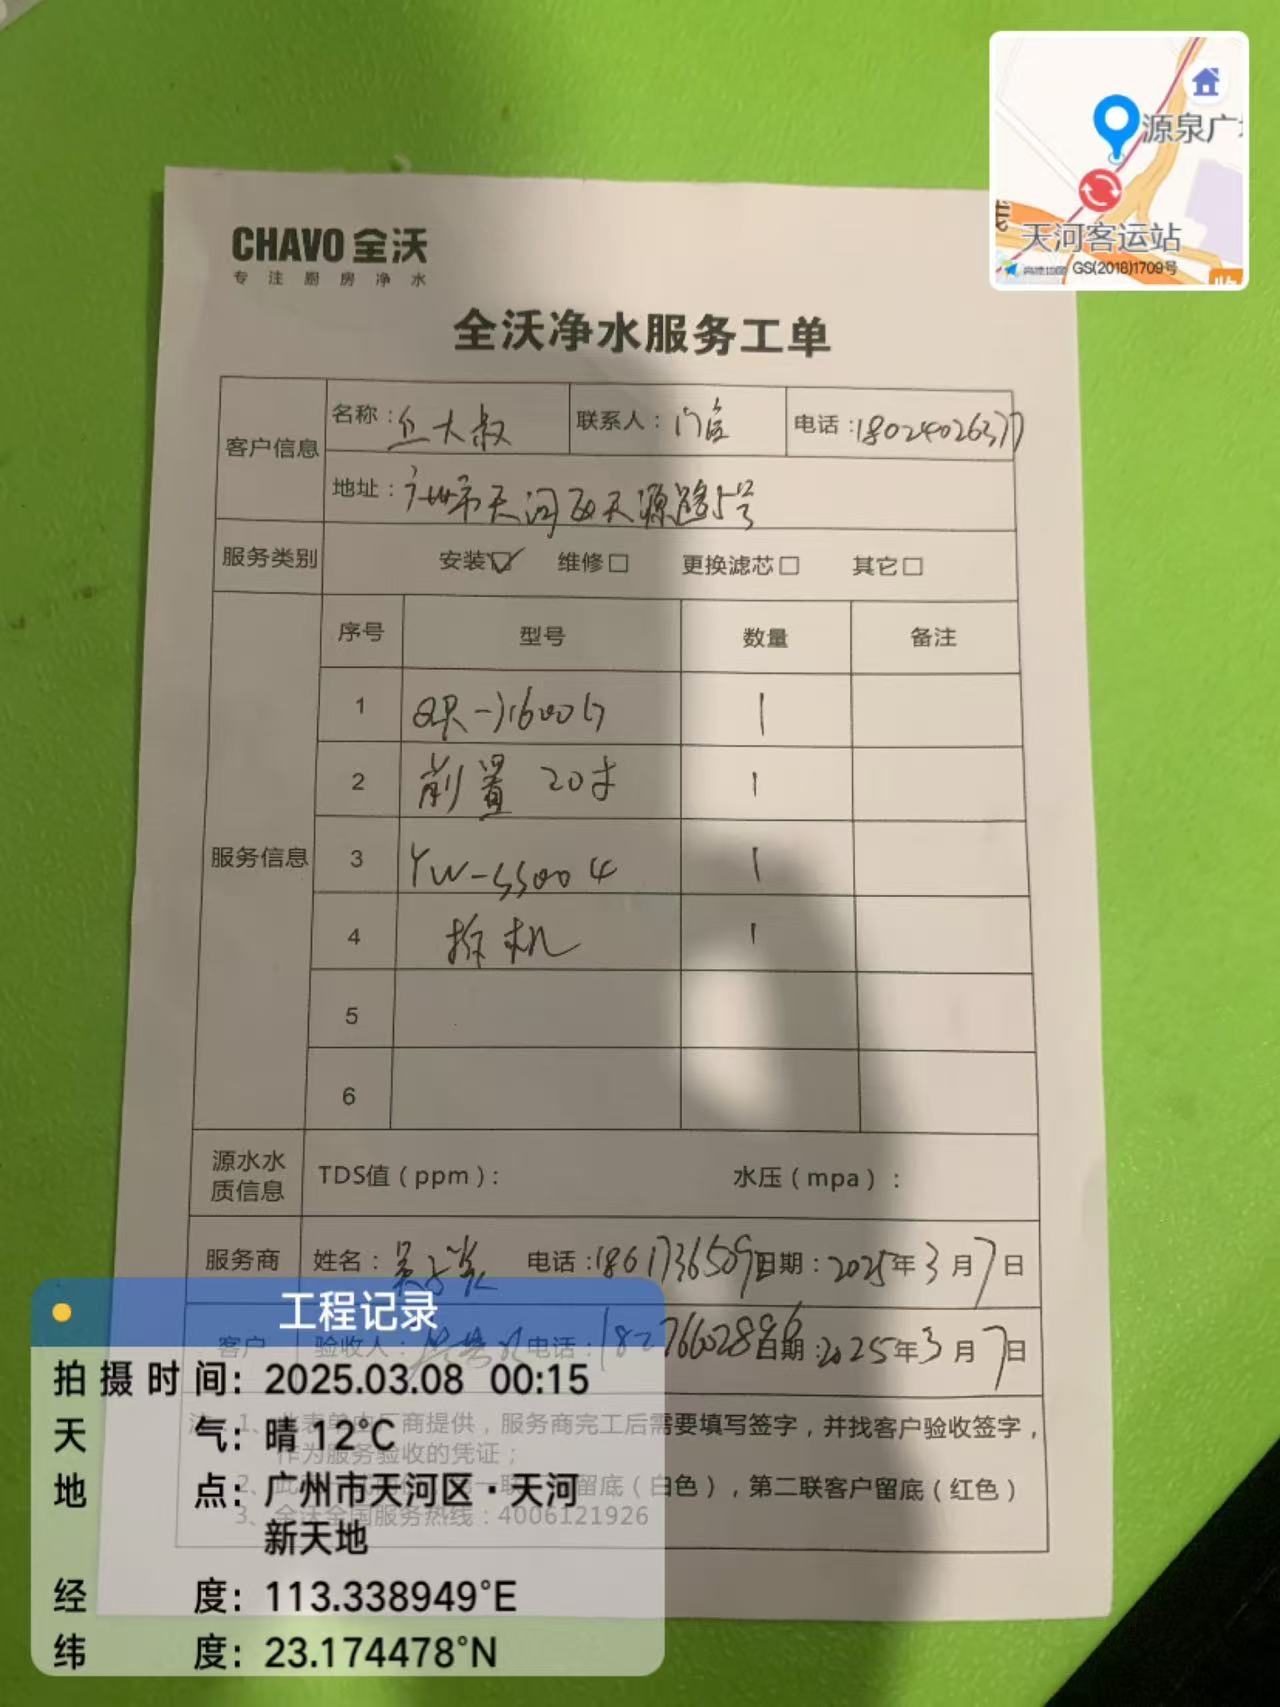 源泉广
天河客运站
高德地图 GS(2018)1709号
CHAVO 全沃
专注厨房净水
全沃净水服务工单
客户信息 名称: 丘大叔 联系人: 门店 电话: 18024026377
地址: 广州市天河区天源路5号
服务类别 安装☑ 维修□ 更换滤芯□ 其它□
服务信息 序号 型号 数量 备注
1 QR-J1600G 1
2 前置 20寸 1
3 YW-SS004 1
4 拆机 1
5
6
源水水质信息 TDS值(ppm): 水压(mpa):
服务商 姓名: 电话: 1861736509 日期: 2025年3月7日
客户 验收人: 电话: 18276602896 日期: 2025年3月7日
注:1、此表单由厂商提供,服务商完工后需要填写签字,并找客户验收签字,
作为服务验收的凭证;
2、此 一联 留底(白色),第二联客户留底(红色)
3、全沃全国服务热线:4006121926
工程记录
拍摄时间: 2025.03.08 00:15
天气: 晴 12℃
地点: 广州市天河区·天河
新天地
经度: 113.338949°E
纬度: 23.174478°N